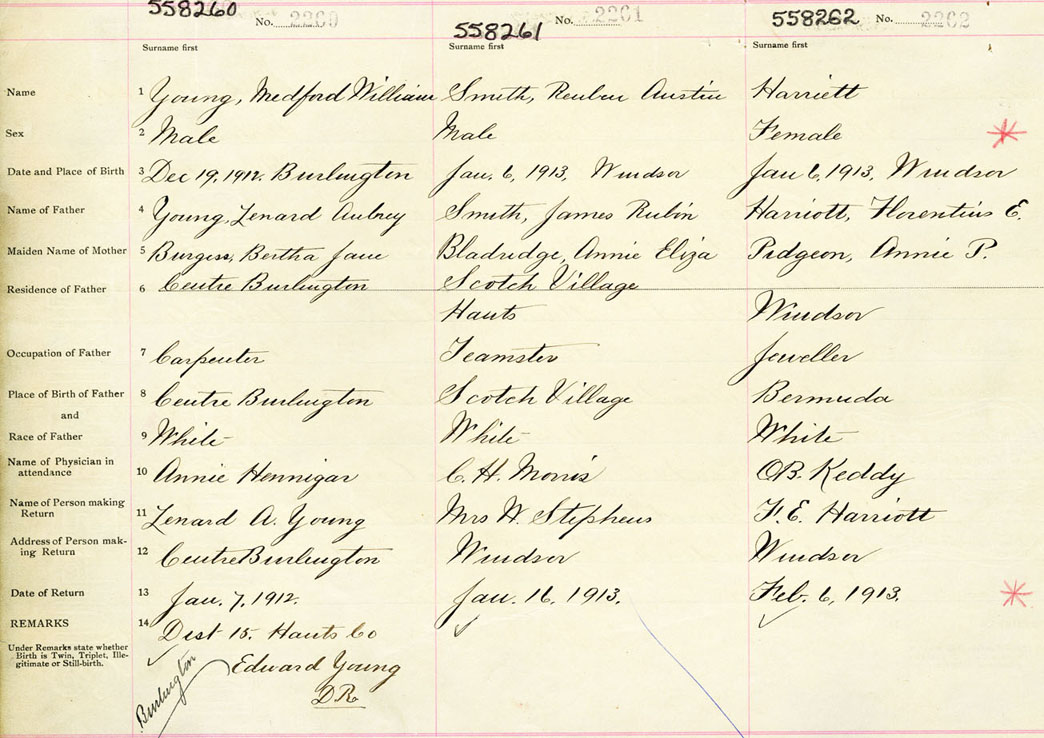 558260 No. 2260 558261 No. 2261 558262 No. 2262
Surname first Surname first Surname first
Name 1 Young, Medford William Smith, Reuben Austin Harriett
Sex 2 Male Male Female
Date and Place of Birth 3 Dec 19, 1912. Burlington Jan. 6, 1913, Windsor Jan 6, 1913, Windsor
Name of Father 4 Young, Lenard Aubrey Smith, James Rubin Harriott, Florentius E.
Maiden Name of Mother 5 Burgess, Bertha Jane Bladridge, Annie Eliza Pidgeon, Annie P.
Residence of Father 6 Centre Burlington Scotch Village
Hants Windsor
Occupation of Father 7 Carpenter Teamster Jeweller
Place of Birth of Father 8 Centre Burlington Scotch Village Bermuda
and
Race of Father 9 White White White
Name of Physician in
attendance 10 Annie Hennigar C. H. Morris OB. Keddy
Name of Person making
Return 11 Lenard A. Young Mrs W. Stephens F. E. Harriott
Address of Person mak-
ing Return 12 Centre Burlington Windsor Windsor
Date of Return 13 Jan. 7, 1912. Jan. 16, 1913. Feb. 6, 1913.
REMARKS 14 Dist 15. Hants Co
Under Remarks state whether
Birth is Twin, Triplet, Ille-
gitimate or Still-birth.
Burlington Edward Young
DR